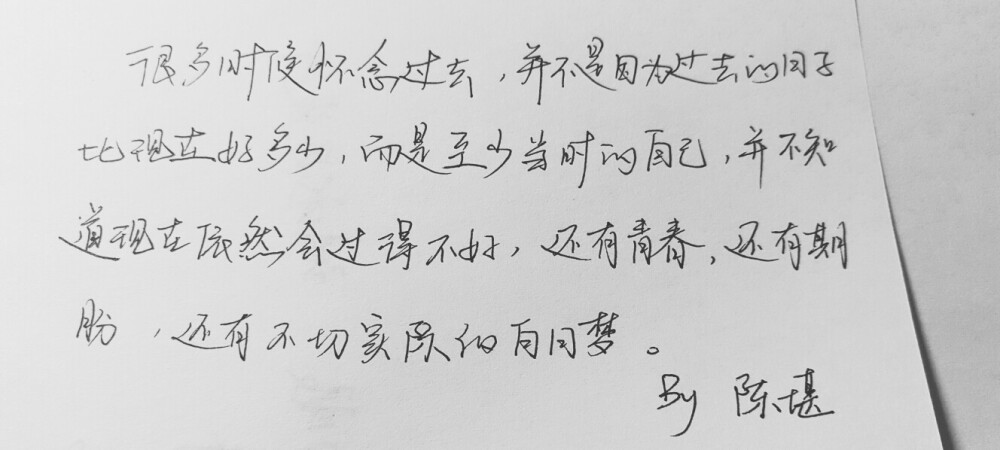 很多时候怀念过去，并不是因为过去的日子
比现在好多少，而是至少当时的自己，并不知
道现在依然会过得不好，还有青春，还有期
盼，还有不切实际的白日梦。
By 陈堪